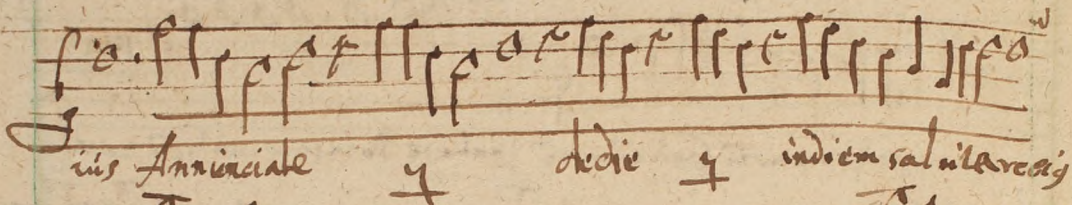 iüs Annunciate y de die y in diem salutare eiȷ